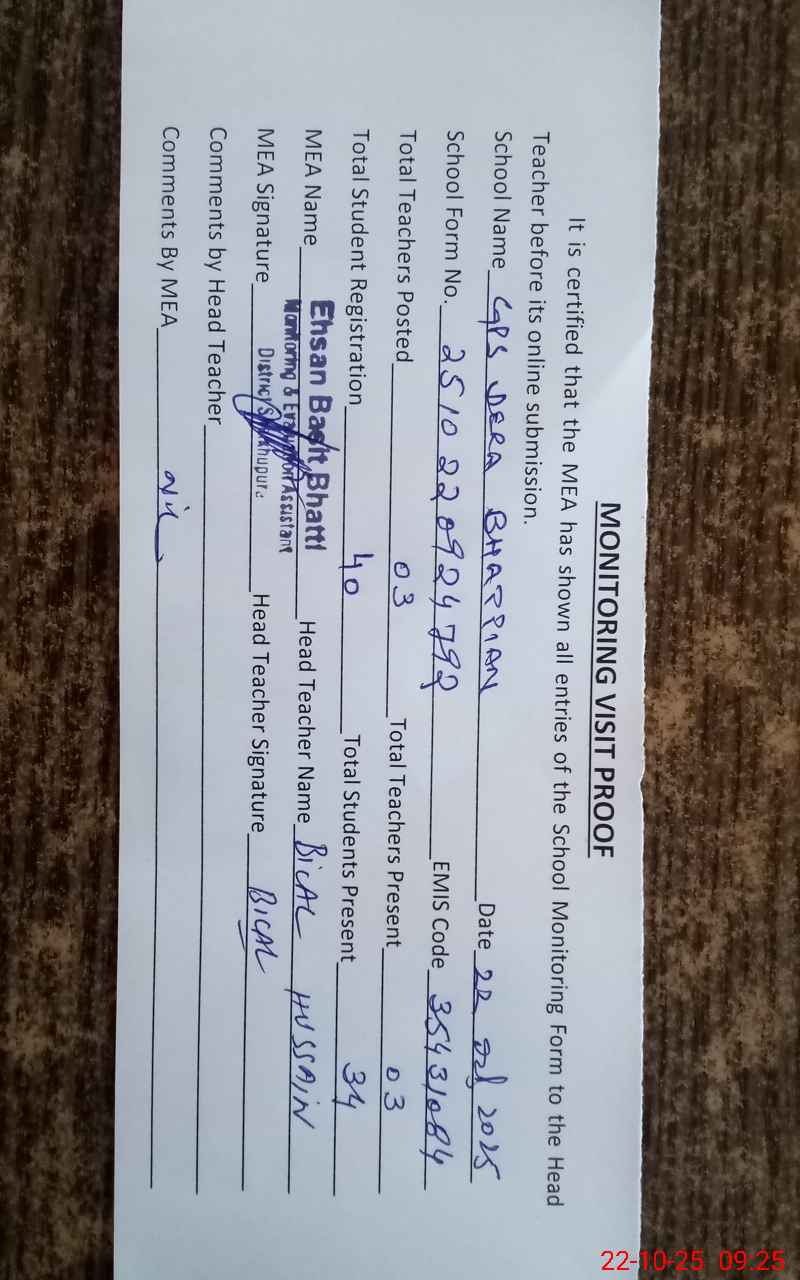 MONITORING VISIT PROOF
It is certified that the MEA has shown all entries of the School Monitoring Form to the Head
Teacher before its online submission.
School Name GPS DERA BHATTIAN Date 22 Oct 2025
School Form No. 2510220924792 EMIS Code 35431084
Total Teachers Posted 03 Total Teachers Present 03
Total Student Registration 40 Total Students Present 34
MEA Name Ehsan Basit Bhatti Head Teacher Name BiLAL HUSSAIN
Monitoring & Evaluation Assistant
MEA Signature District Sheikhupura Head Teacher Signature BiLAL
Comments by Head Teacher
Comments By MEA Nil
22-10-25 09:25